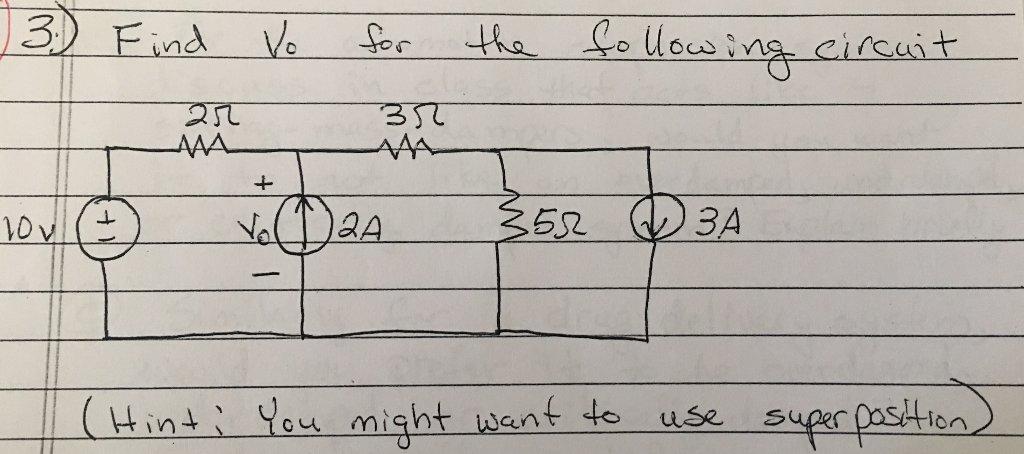 3.) Find Vo for the following circuit
2Ω 3Ω
+
10v + - Vo 2A 5Ω 3A
-
(Hint: You might want to use superposition)